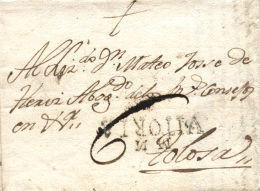 Al Liz.do Dn Mateo Jose de
Hervi Abog.do de los Rs Consejos
en &ª
6
Tolosa